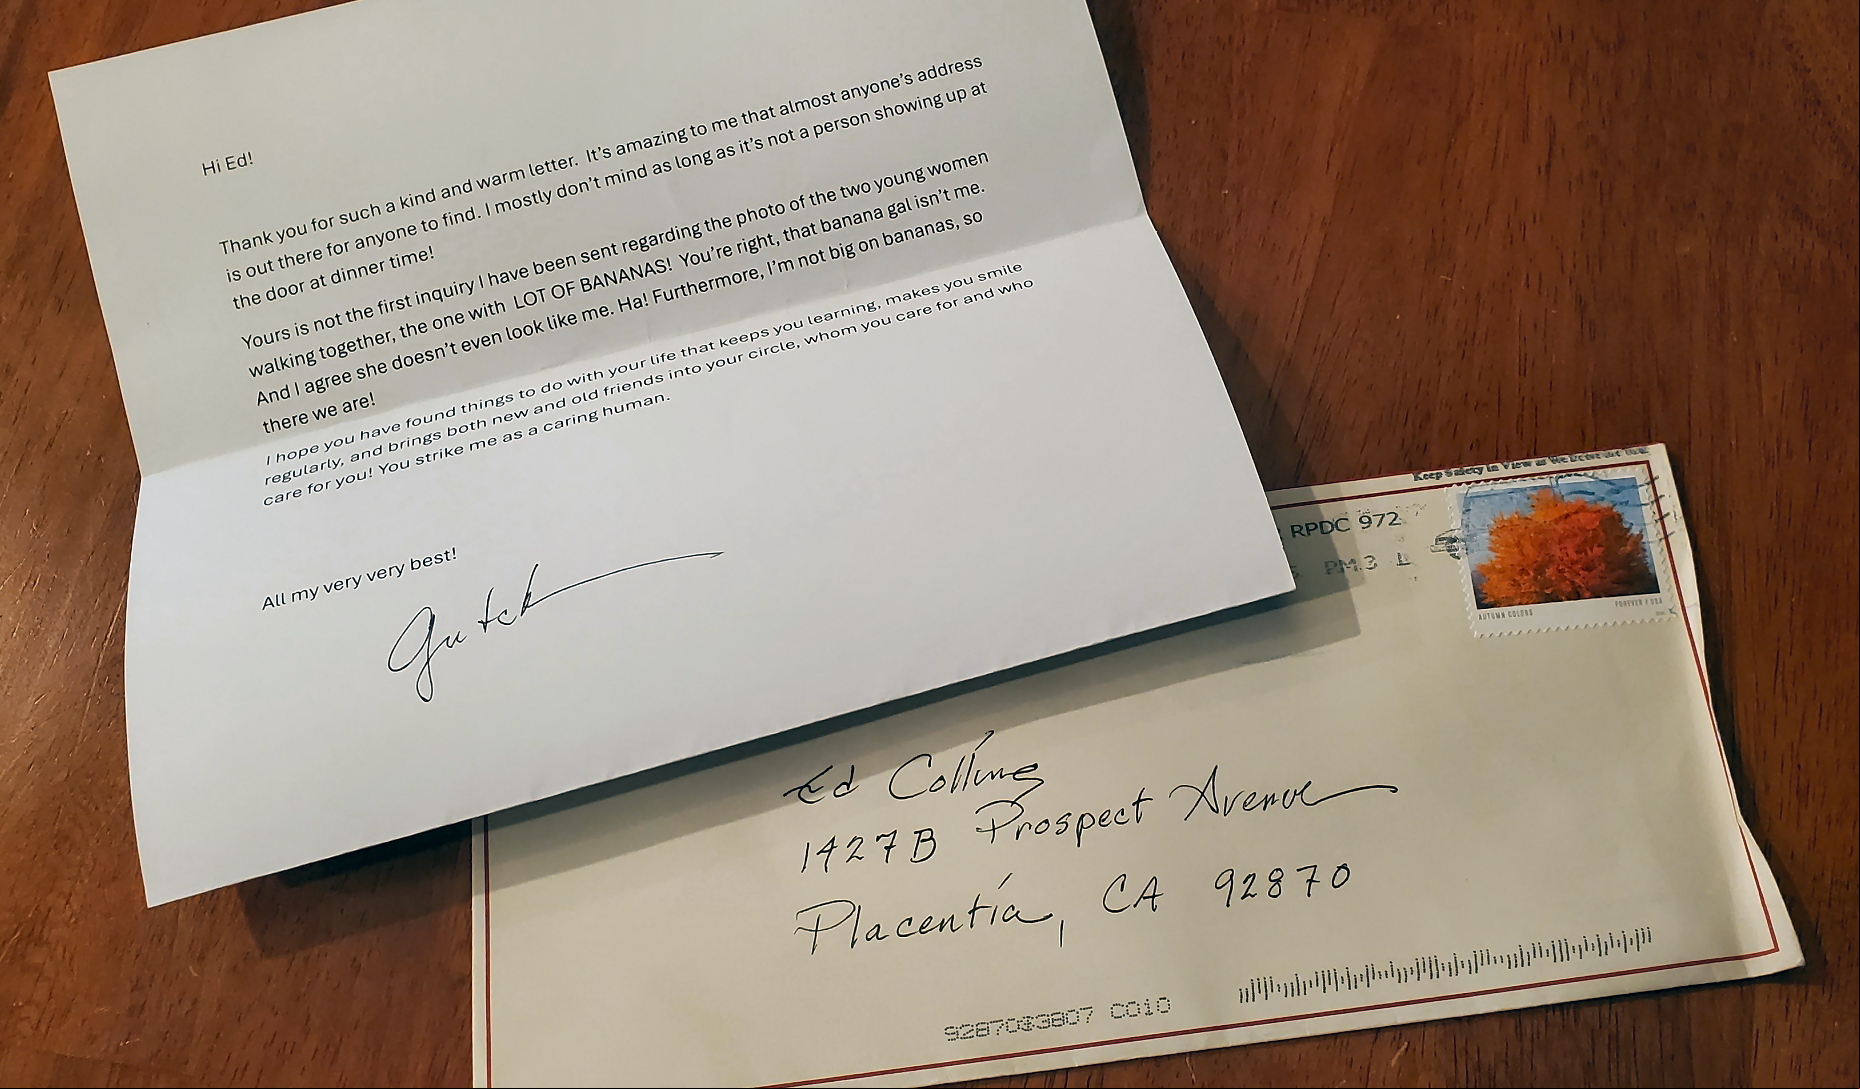 Hi Ed!
Thank you for such a kind and warm letter.  It's amazing to me that almost anyone's address
is out there for anyone to find. I mostly don't mind as long as it's not a person showing up at
the door at dinner time!
Yours is not the first inquiry I have been sent regarding the photo of the two young women
walking together, the one with  LOT OF BANANAS!  You're right, that banana gal isn't me.
And I agree she doesn't even look like me. Ha! Furthermore, I'm not big on bananas, so
there we are!
I hope you have found things to do with your life that keeps you learning, makes you smile
regularly, and brings both new and old friends into your circle, whom you care for and who
care for you! You strike me as a caring human.
All my very very best!
Gutch
RPDC 972
PM 3 L
AUTUMN COLORS
FOREVER / USA
Ed Collins
1427B Prospect Avenue
Placentia, CA 92870
92870$3807 C010